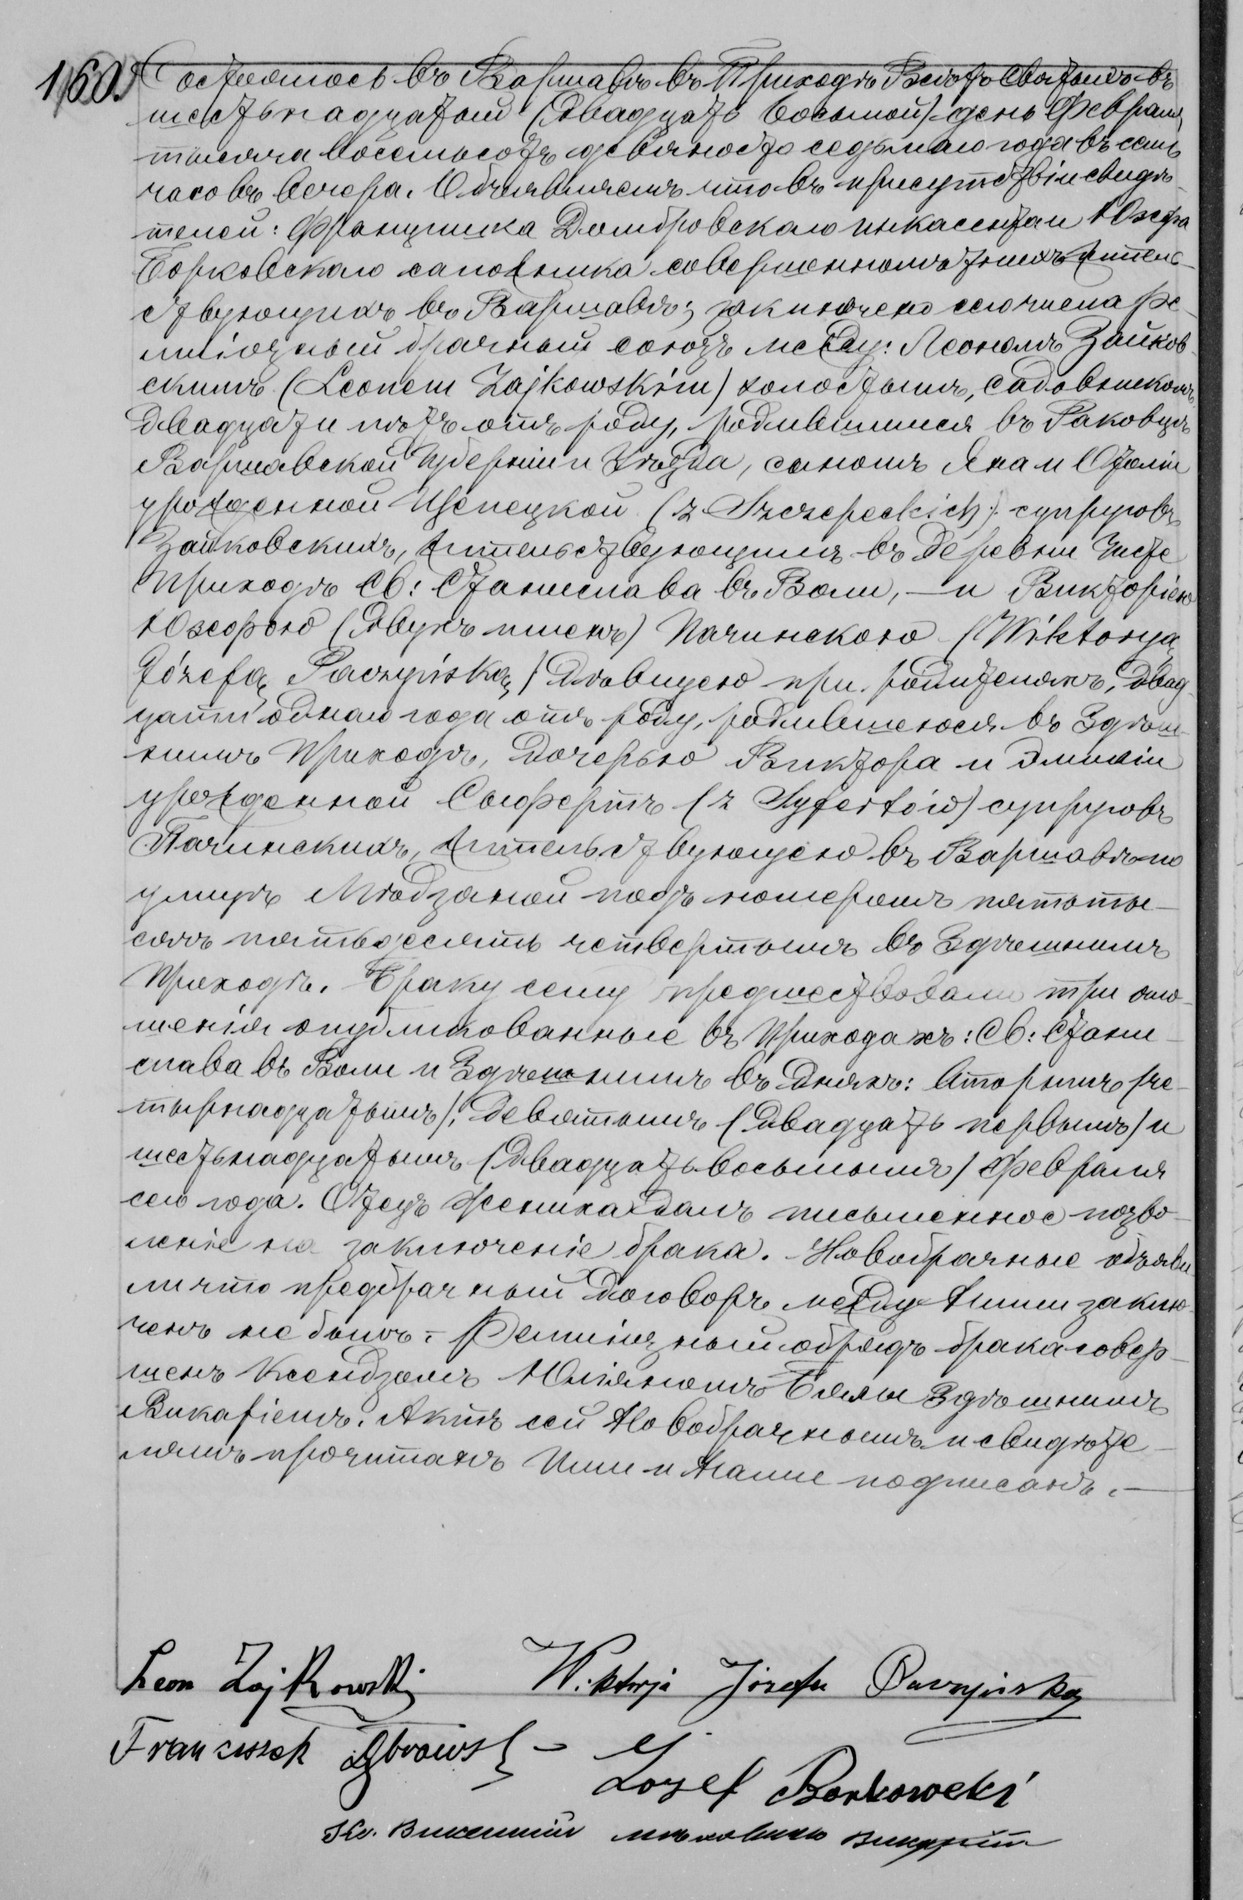 160.
Состоялось въ Варшавѣ въ Приходѣ Всѣхъ Святыхъ въ
шестьнадцатый (Двадцать восьмой) день Февраля
тысяча восемьсотъ девяносто седьмаго года въ семь
часовъ вечера. Объявляемъ что въ присутствіи свидѣ-
телей: Францишка Домбровскаго инкассента и Юзефа
Борковскаго сапожника совершеннолѣтнихъ житель-
ствующихъ въ Варшавѣ; заключено сего числа ре-
лигіозный брачный союзъ между: Леономъ Зайков-
скимъ (Leonem Zajkowskim) холостымъ, садовникомъ,
двадцати пять отъ роду, родившимся въ Раковцѣ
Варшавской Губерніи и Уѣзда, сыномъ Яна и
урожденной Щепецкой (z Szczepeckich) супруговъ
Зайковскихъ, жительствующимъ въ деревни Чисте
Приходѣ Св: Станислава въ Воли, — и Викторіею
Юзефою (двухъ именъ) Пачинскою (Wiktoryą
Józefą Paczyńską) дѣвицею при родителяхъ, двад-
цати одного года отъ роду, родившеюся въ Здѣш-
нимъ Приходѣ, дочерью Виктора и Эмиліи
урожденной Сыфертъ (z Syfertów) супруговъ
Пачинскихъ, жительствующею въ Варшавѣ по
улицѣ подъ номеромъ пятьты-
сячъ пятьдесять четвертымъ въ Здѣшнимъ
Приходѣ. Браку сему предшествовали три огла-
шенія опубликованные въ Приходахъ: Св: Стани-
слава въ Воли и Здѣшнимъ въ дняхъ: вторымъ (че-
тырнадцатымъ), девятымъ (двадцать первымъ) и
шестьнадцатымъ (двадцать восьмымъ) Февраля
сего года. Отецъ жениха далъ письменное позво-
леніе на заключеніе брака. Новобрачные объяви-
ли что предбрачный договоръ между ними заклю-
ченъ не былъ. Религіозный обрядъ брака совер-
шенъ Ксендзомъ Юліаномъ Здѣшнимъ
Викаріемъ. Актъ сей Новобрачнымъ и свидѣте-
лямъ прочитанъ Ими и Нами подписанъ. —
Leon Zajkowski Wiktorja Józefa Paczyńska
Franciszek Dąbrowski — Józef Borkowski
Кс. Викентій Викарій